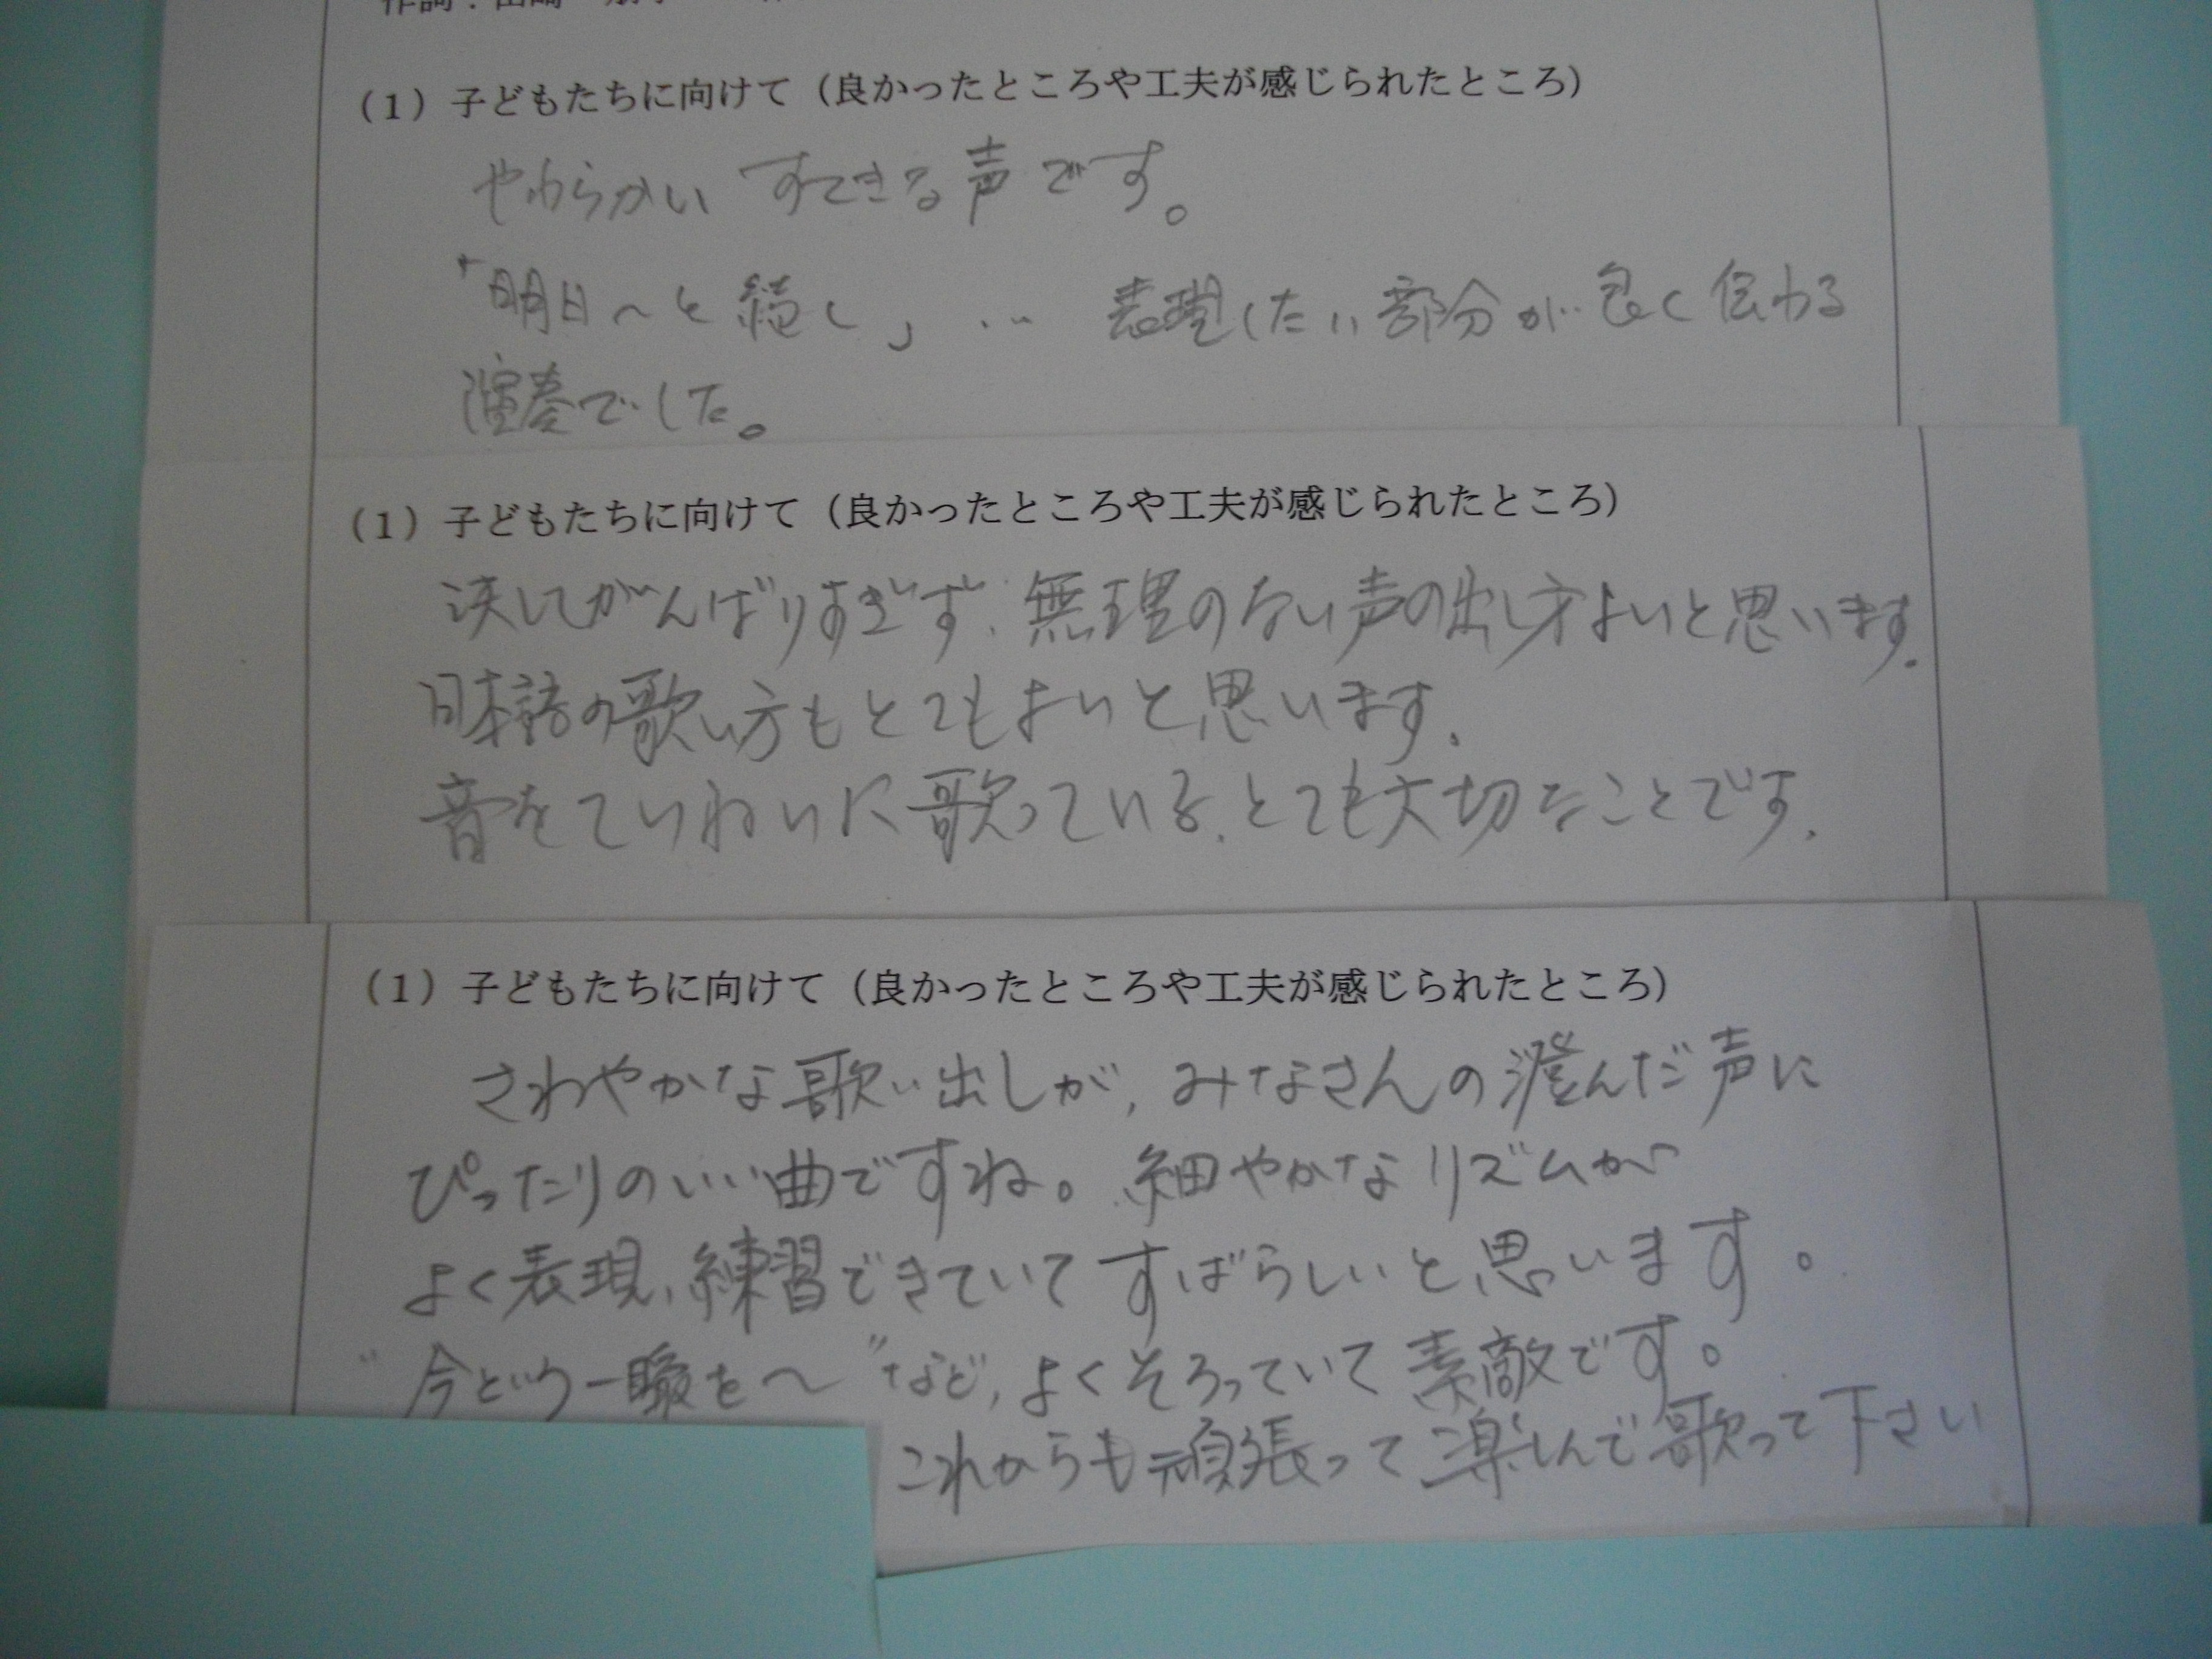 作詞：山崎
（1）子どもたちに向けて（良かったところや工夫が感じられたところ）
やわらかい すてきな声です。
「明日へと続く」… 表現したい部分が良く伝わる
演奏でした。
（1）子どもたちに向けて（良かったところや工夫が感じられたところ）
決してがんばりすぎず、無理のない声の出し方よいと思います。
日本語の歌い方もとてもよいと思います。
音をていねいに歌っている、とても大切なことです。
（1）子どもたちに向けて（良かったところや工夫が感じられたところ）
さわやかな歌い出しが、みなさんの澄んだ声に
ぴったりのいい曲ですね。細やかなリズムが
よく表現、練習できていてすばらしいと思います。
"今という一瞬を〜"など、よくそろっていて素敵です。
これからも頑張って楽しんで歌って下さい